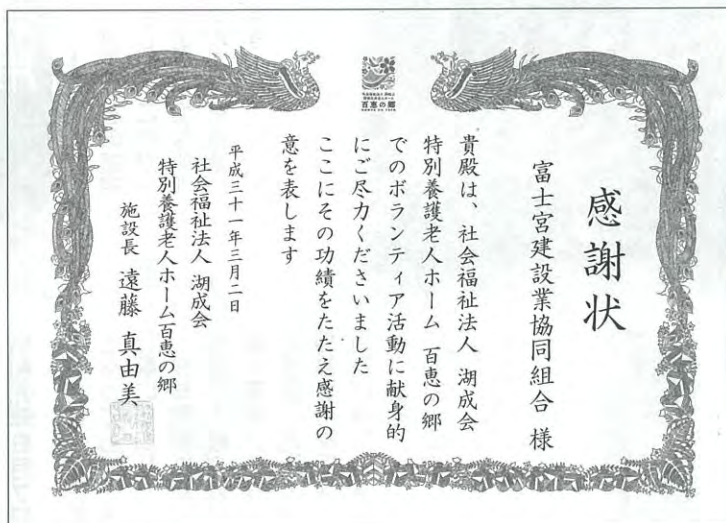 百恵の郷
感謝状
富士宮建設業協同組合 様
貴殿は、社会福祉法人 湖成会
特別養護老人ホーム 百恵の郷
でのボランティア活動に献身的
にご尽力くださいました
ここにその功績をたたえ感謝の
意を表します
平成三十一年三月二日
社会福祉法人 湖成会
特別養護老人ホーム百恵の郷
施設長 遠藤 真由美